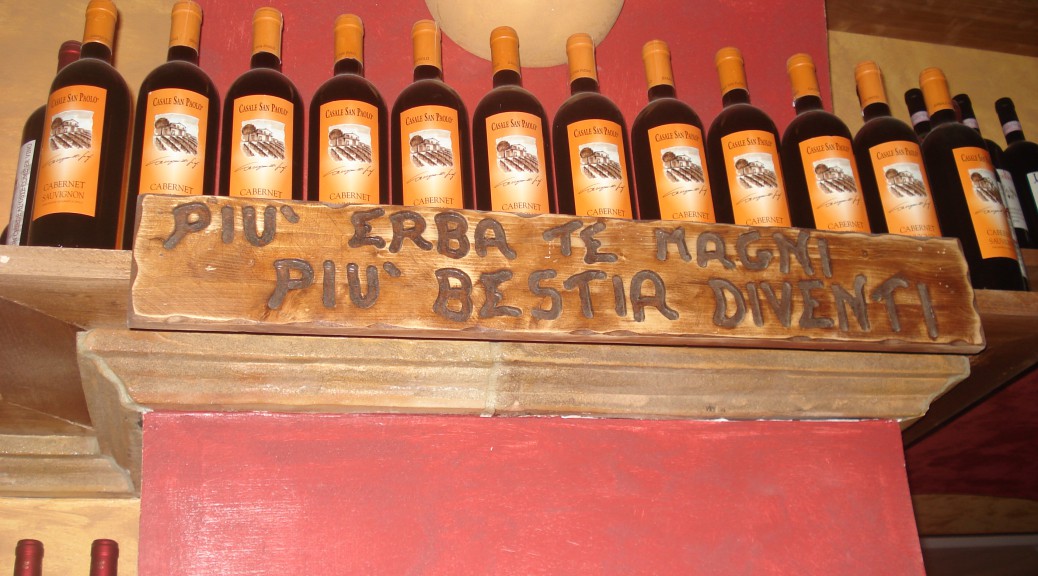 CASALE SAN PAOLO
CABERNET
SAUVIGNON
CASALE SAN PAOLO
CABERNET
CASALE SAN PAOLO
CABERNET
CASALE SAN PAOLO
CABERNET
CASALE SAN PAOLO
CABERNET
CASALE SAN PAOLO
CABERNET
CASALE SAN PAOLO
CABERNET
CASALE SAN PAOLO
CABERNET
CASALE SAN PAOLO
CABERNET
CASALE SAN PAOLO
CABERNET
CASALE SAN PAOLO
CABERNET
CASALE SAN PAOLO
CABERNET
SAUVIGNON
PIU' ERBA TE MAGNI
PIU' BESTIA DIVENTI